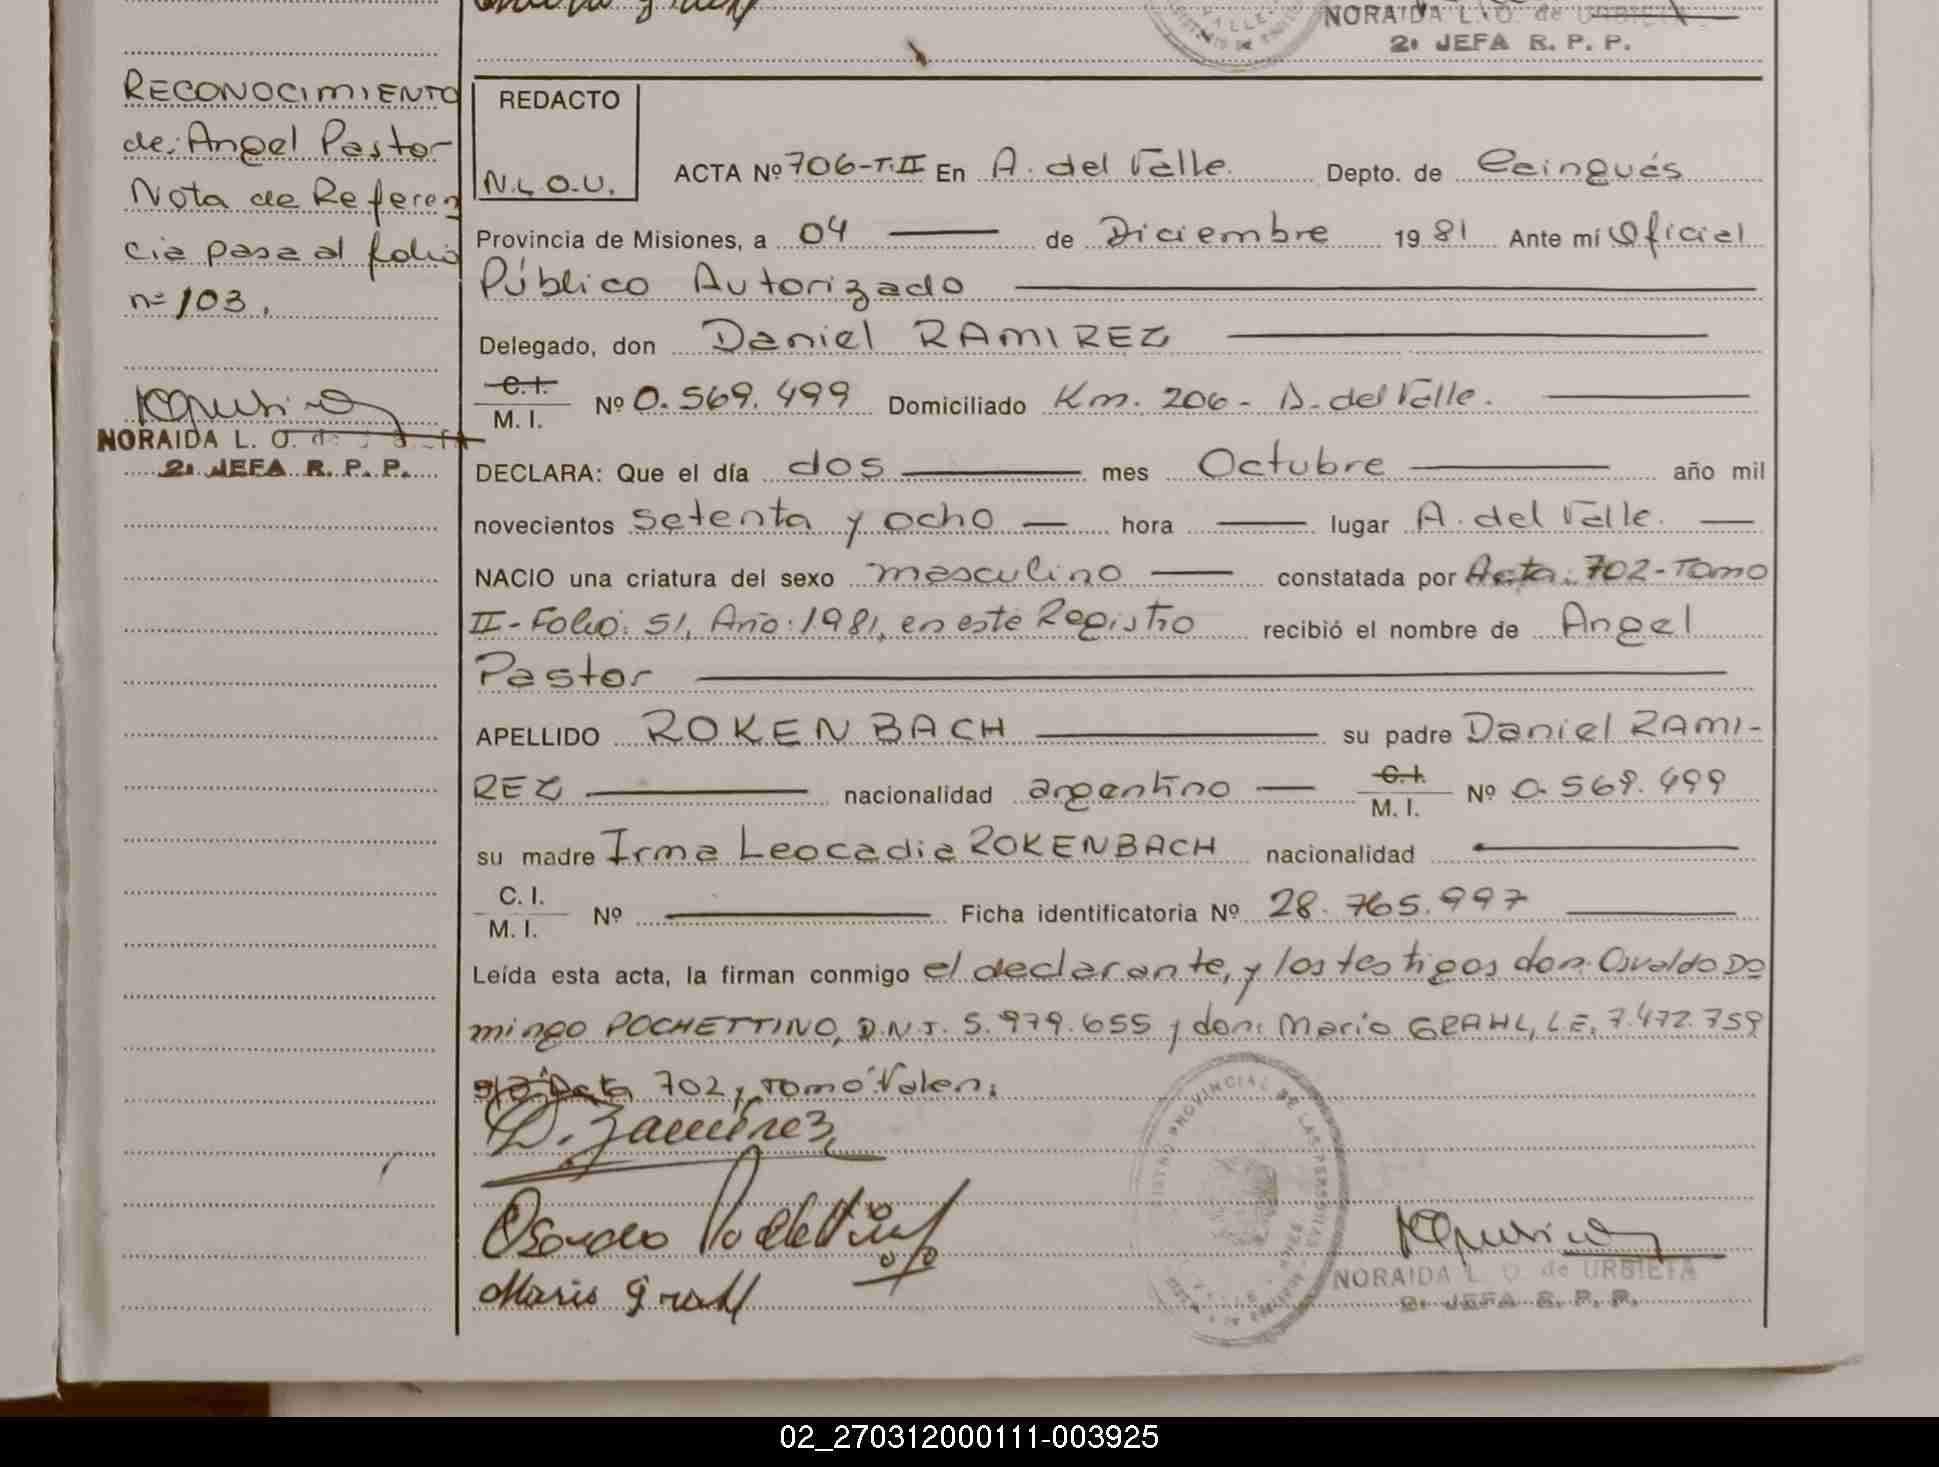 NORAIDA L. O. de URBIETA
2a JEFA R. P. P.
RECONOCIMIENTO
de: Angel Pastor
Nota de Referen
cia pasa al folio
nº 103.
NORAIDA L. O. de
2a JEFA R. P. P.
REDACTO
N.L.O.U.
ACTA Nº 706-T.II En A. del Valle. Depto. de Caingués
Provincia de Misiones, a 04 de Diciembre 1981 Ante mí Oficial
Público Autorizado
Delegado, don Daniel RAMIREZ
C.I.
M. I. Nº 0.569.499 Domiciliado Km. 206 - A. del Valle.
DECLARA: Que el día dos mes Octubre año mil
novecientos setenta y ocho hora lugar A. del Valle.
NACIO una criatura del sexo masculino constatada por Acta: 702-Tomo
II-Folio: 51, Año: 1981, en este Registro recibió el nombre de Angel
Pastor
APELLIDO ROKENBACH su padre Daniel RAMI-
REZ nacionalidad argentino C.I. M. I. Nº 0.569.499
su madre Irma Leocadia ROKENBACH nacionalidad
C. I.
M. I. Nº Ficha identificatoria Nº 28.765.997
Leída esta acta, la firman conmigo el declarante, y los testigos don: Osvaldo Do
mingo POCHETTINO, D.N.I. 5.979.655 y don: Mario GRAHL, L.E. 7.472.759
s/r: Acta 702, y Tomo: Valen:
D. Ramírez
Osvaldo Pochettino
Mario Grahl
REGISTRO PROVINCIAL DE LAS PERSONAS
NORAIDA L. O. de URBIETA
2a JEFA R. P. P.
02_270312000111-003925